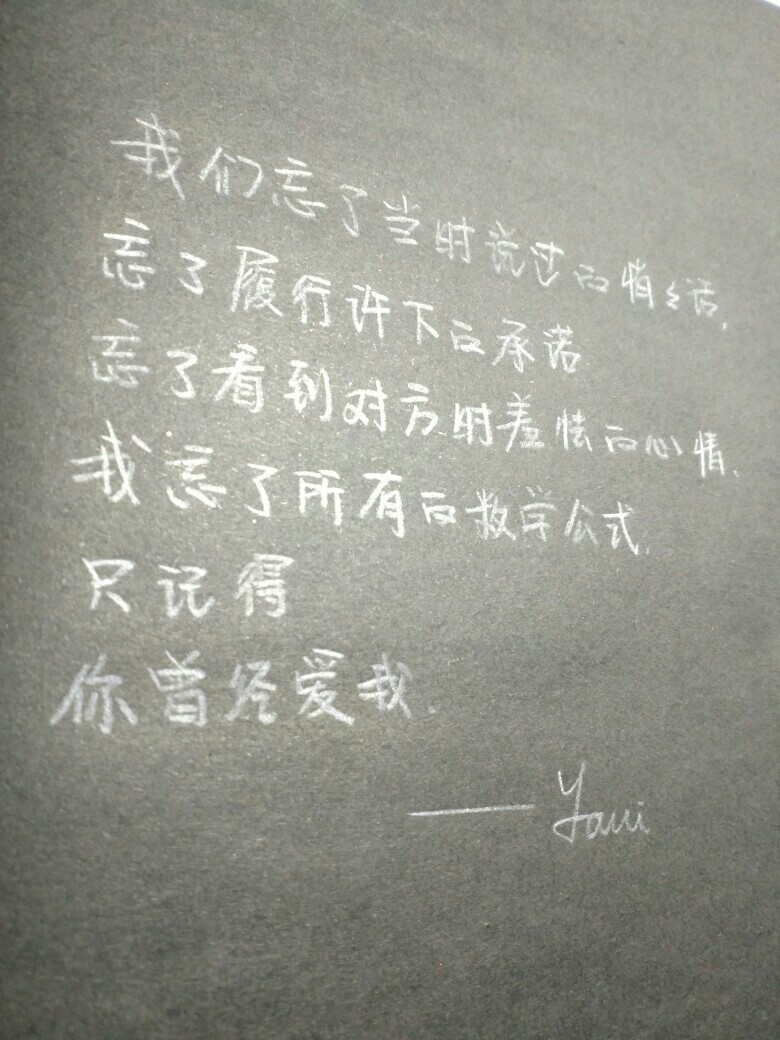 我们忘了当时说过的悄悄话,
忘了履行许下的承诺
忘了看到对方时羞怯的心情.
我忘了所有的数学公式.
只记得
你曾经爱我.